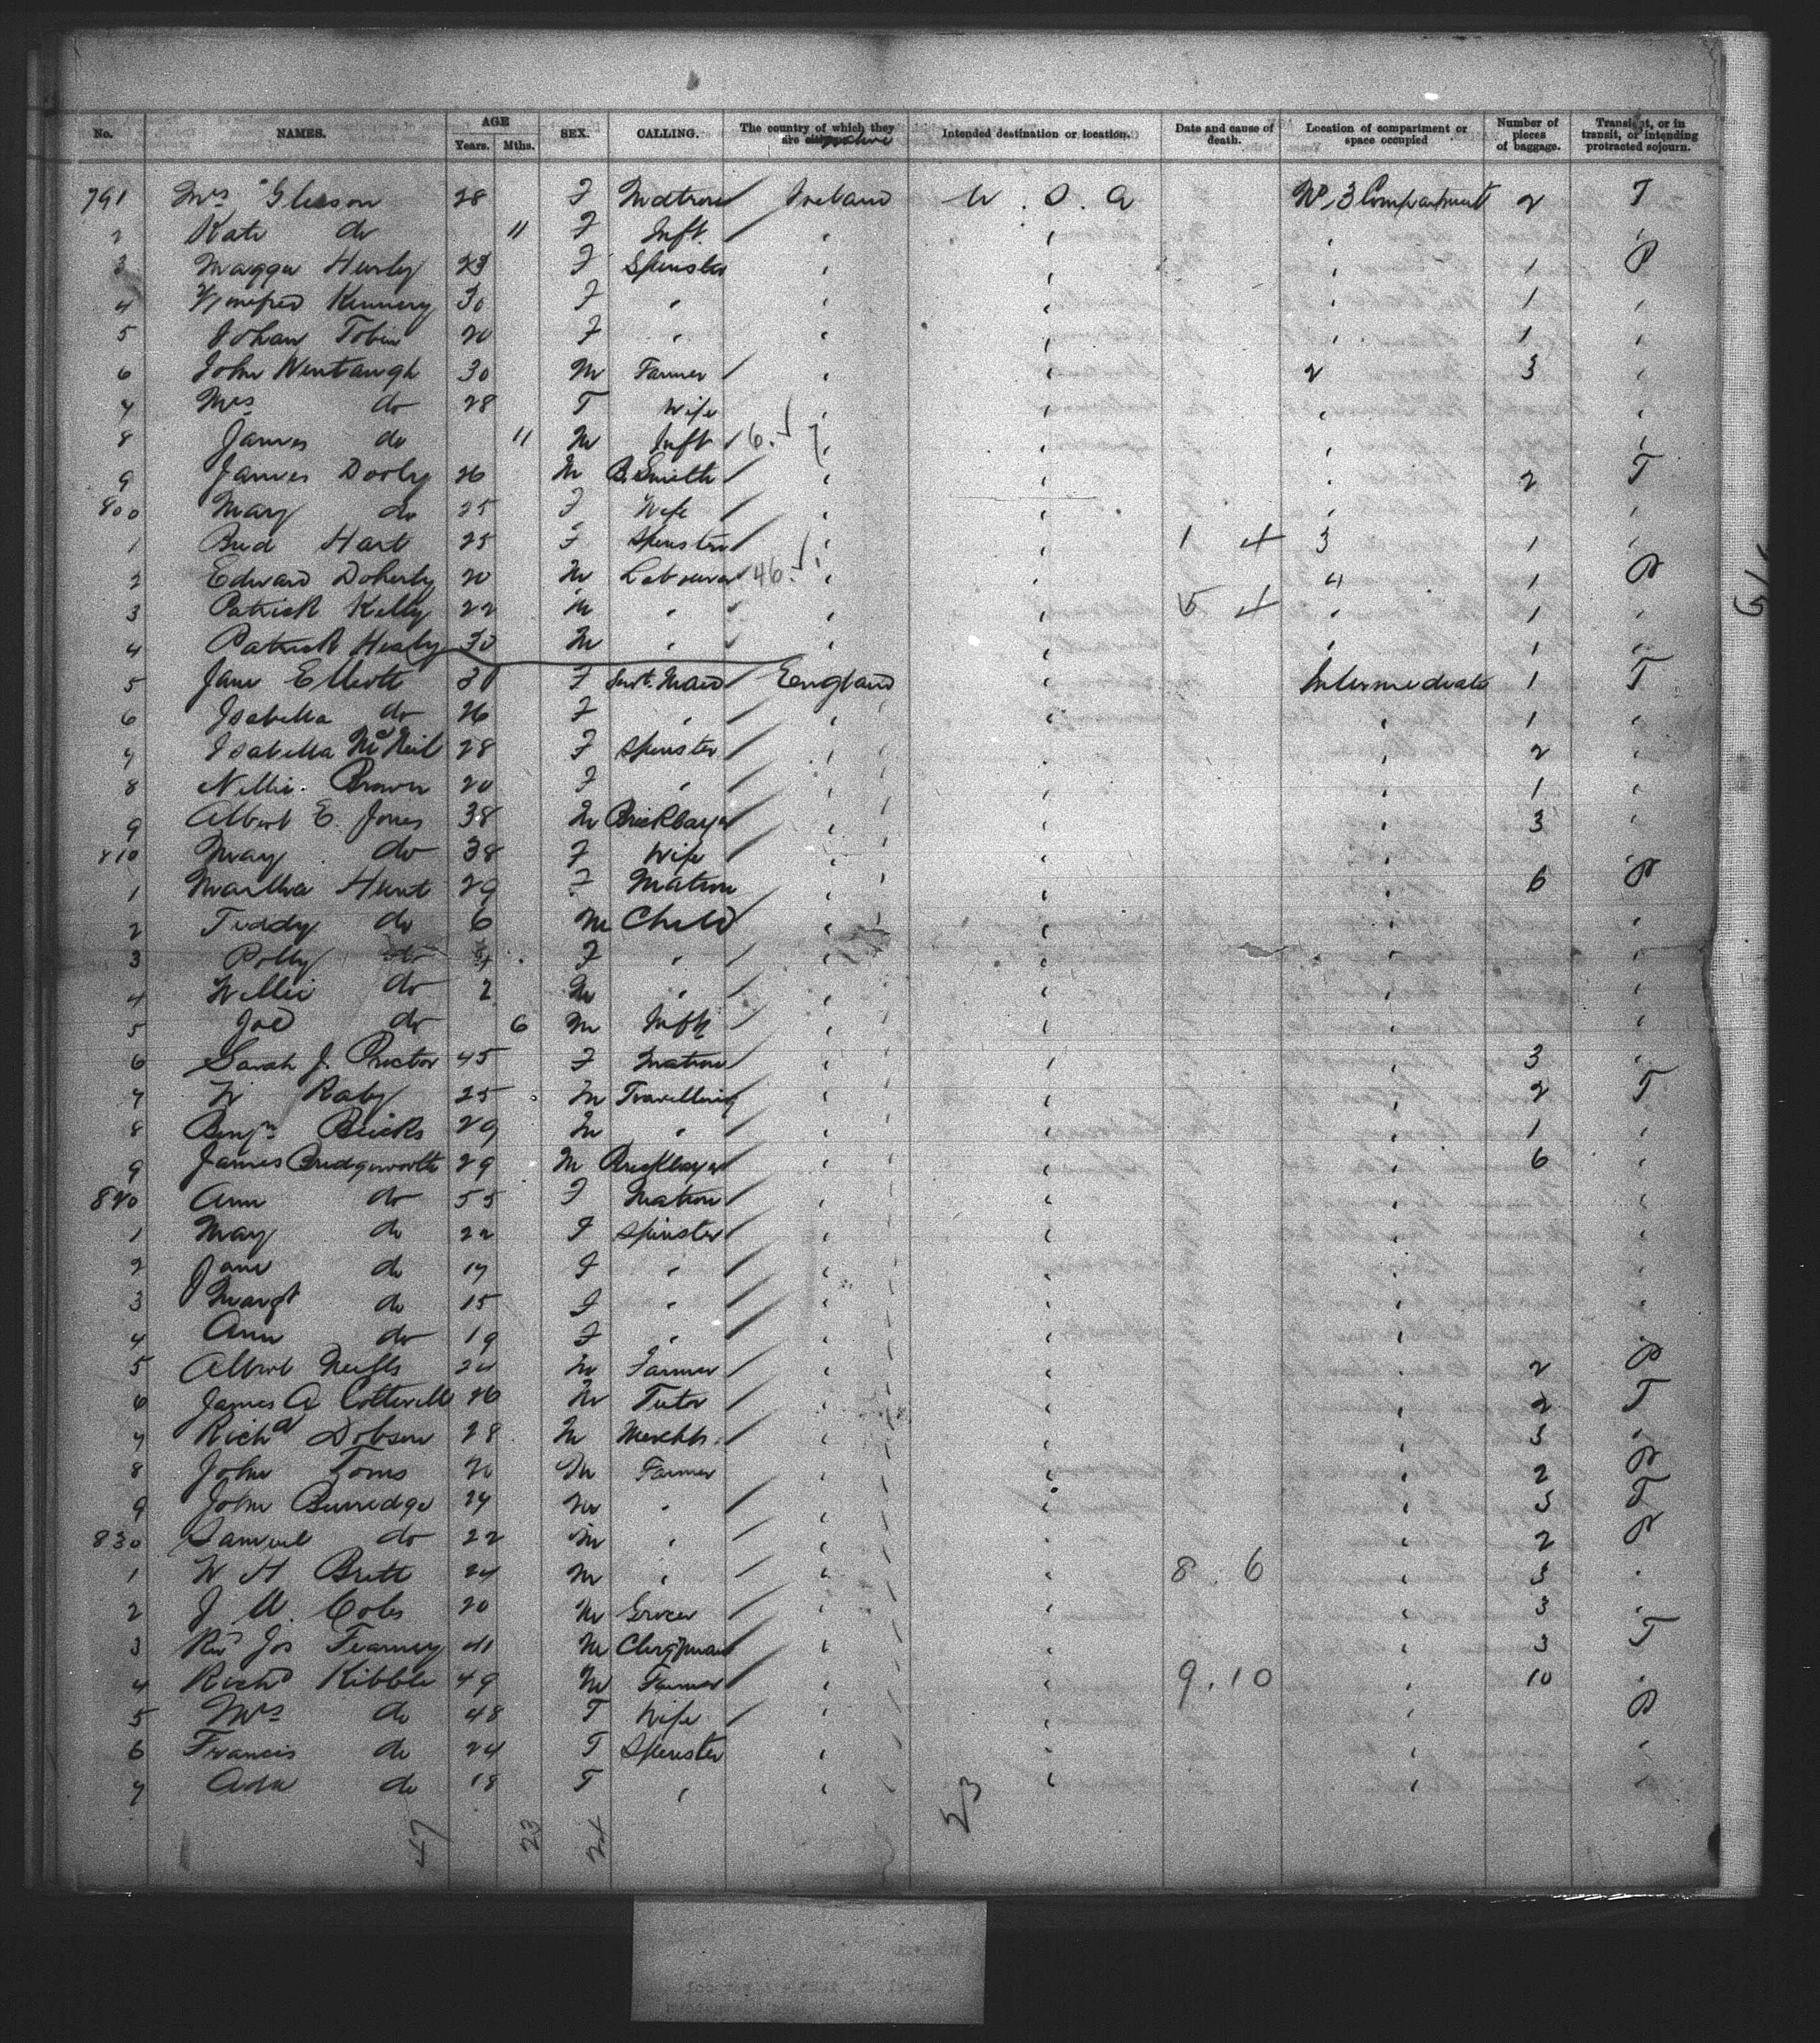 No. NAMES. AGE Years. Mths. SEX. CALLING. The country of which they are native Intended destination or location. Date and cause of death. Location of compartment or space occupied Number of pieces of baggage. Transient, or in transit, or intending protracted sojourn.
791 Mrs Gleeson 28 F Matron Ireland U. S. A No. 3 Compartment 2 T
2 Kate do 11 F Inft. " " " "
3 Maggie Hurly 23 F Spinster " " " 1 P
4 Winefred Kennery 30 F " " " " 1 "
5 Johan Tobin 20 F " " " " 1 "
6 John Wentaugh 30 M Farmer " " 2 3 "
7 Mrs do 28 F Wife " " " "
8 James do 11 M Inft 16. " " " "
9 James Dooly 26 M B. Smith " " " 2 T
800 Mary do 25 F Wife " " " "
1 Brid Hart 25 F Spinster " " 1 4 3 1 "
2 Edward Doherty 20 M Labourer 46. " " 4 1 P
3 Patrick Kelly 22 M " " " 5 4 " 1 "
4 Patrick Healy 30 M " " " " 1 "
5 Jane Elliott 30 F Servt. Maid England " Intermediate 1 T
6 Isabella do 26 F " " " " 1 "
7 Isabella McNeil 28 F Spinster " " " 2 "
8 Nellie Brown 20 F " " " " 1 "
9 Albert E. Jones 38 M Bricklayer " " " 3 "
810 May do 38 F Wife " " " "
1 Martha Hunt 29 F Matron " " " 6 P
2 Teddy do 6 M Child " " " "
3 Polly do 4 F " " " " "
4 Willie do 2 M " " " " "
5 Joe do 6 M Inft " " " "
6 Sarah J. Proctor 45 F Matron " " " 3 "
7 W Raby 25 M Travelling " " " 2 T
8 Benjn Bricks 29 M " " " " 1 "
9 James Bridgeworth 29 M Bricklayer " " " 6 "
820 Ann do 55 F Matron " " " "
1 May do 22 F Spinster " " " "
2 Jane do 17 F " " " " "
3 Margt do 15 F " " " " "
4 Ann do 19 F " " " " "
5 Albert 24 M Farmer " " " 2 P
6 James A Cotterell 26 M Tutor " " " 2 T
7 Richd Dobson 28 M Mercht. " " " 3 "
8 John Toms 20 M Farmer " " " 2 P
9 John Burridge 24 M " " " " 3 T
830 Samuel do 22 M " " " " 2 P
1 W H Brett 24 M " " " 8. 6 " 3 "
2 J. W. Coles 20 M Grocer " " " 3 "
3 Rev Jos Fearney 41 M Clergyman " " " 3 T
4 Richd Kibble 49 M Farmer " " 9. 10 " 10 "
5 Mrs do 48 F Wife " " " P
6 Francis do 24 F Spinster " " " "
7 Ada do 18 F " " " " "
47 23 24 23